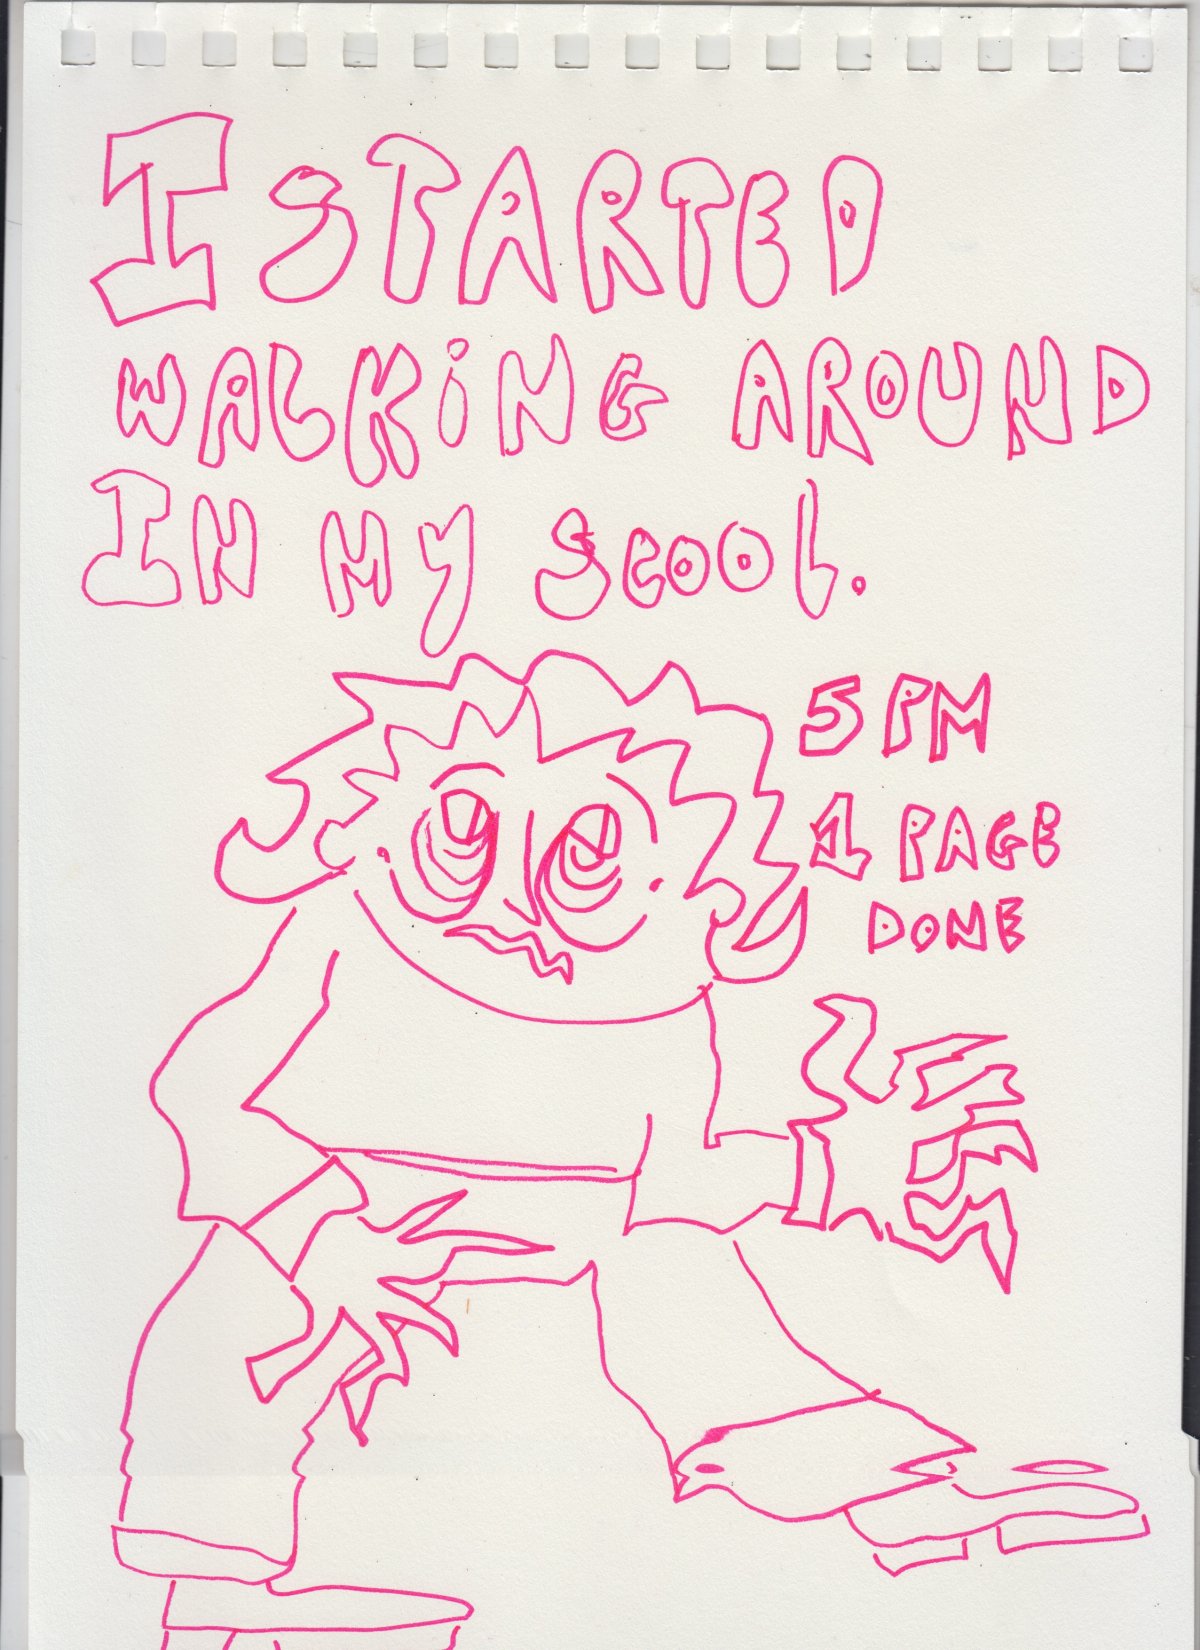 I STARTED
WALKiNG AROUND
IN MY SCOOL.
5 PM
1 PAGE
DONE